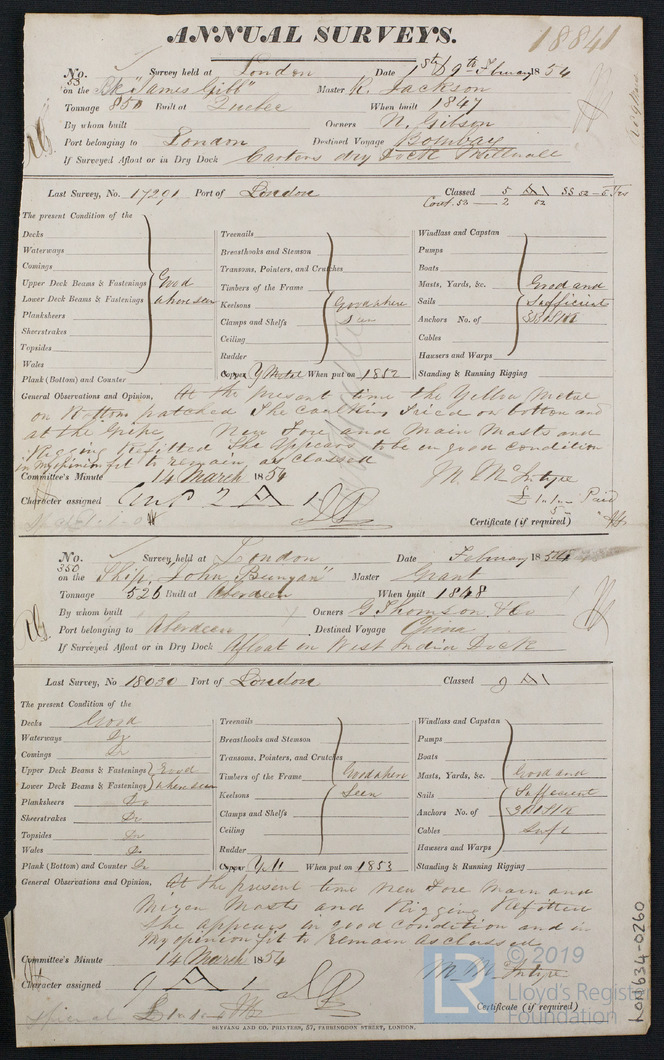 ANNUAL SURVEYS.
18841
No. 53 Survey held at London Date 1st & 9th February 1854
on the Bk "James Gibb" Master R. Jackson
Tonnage 850 Built at Quebec When built 1847
By whom built Owners N. Gibson
Port belonging to London Destined Voyage Bombay
If Surveyed Afloat or in Dry Dock Carters dry Dock Millwall
Last Survey, No. 17291 Port of London Classed 5 A 1
The present Condition of the
Decks Treenails Windlass and Capstan
Waterways Breasthooks and Stemson Pumps
Comings Transoms, Pointers, and Crutches Boats
Upper Deck Beams & Fastenings Good Timbers of the Frame Masts, Yards, &c. Good and
Lower Deck Beams & Fastenings where seen Keelsons Good where Sails Sufficient
Planksheers Clamps and Shelfs Seen Anchors No. of
Sheerstrakes Ceiling Cables
Topsides Rudder Hawsers and Warps
Wales Copper Y Metal When put on 1852 Standing & Running Rigging
Plank (Bottom) and Counter
General Observations and Opinion, At the present time the Yellow Metal
on Bottom patched The caulking tried on bottom and
at the Gripe New Fore and Main Masts and
Rigging Refitted She appears to be in good condition
in my opinion fit to remain as classed
Committee's Minute 14 March 1854 M. McIntype
Character assigned A 1 £1.1. Paid
Certificate (if required)
No. 350 Survey held at London Date February 1854
on the Ship, "John Bunyan" Master Grant
Tonnage 526 Built at Aberdeen When built 1848
By whom built Owners G Thomson & Co
Port belonging to Aberdeen Destined Voyage China
If Surveyed Afloat or in Dry Dock Afloat in West India Dock
Last Survey, No 18030 Port of London Classed 9 A 1
The present Condition of the
Decks Good Treenails Windlass and Capstan
Waterways Do Breasthooks and Stemson Pumps
Comings Do Transoms, Pointers, and Crutches Boats
Upper Deck Beams & Fastenings Good Timbers of the Frame Good where Masts, Yards, &c. Good and
Lower Deck Beams & Fastenings where seen Keelsons Seen Sails Sufficient
Planksheers Do Clamps and Shelfs Anchors No. of
Sheerstrakes Do Ceiling Cables Suft
Topsides Do Rudder Hawsers and Warps
Wales Do Copper Y M When put on 1853 Standing & Running Rigging
Plank (Bottom) and Counter Do
General Observations and Opinion, At the present time new Fore Main and
Mizen Masts and Rigging Refitted
She appears in good condition and in
my opinion fit to remain as classed
Committee's Minute 14 March 1854
Character assigned 9 A 1
Certificate (if required)
SEYFANG AND CO. PRINTERS, 57, FARRINGDON STREET, LONDON.
LR © 2019
Lloyd's Register
Foundation
LON634-0260